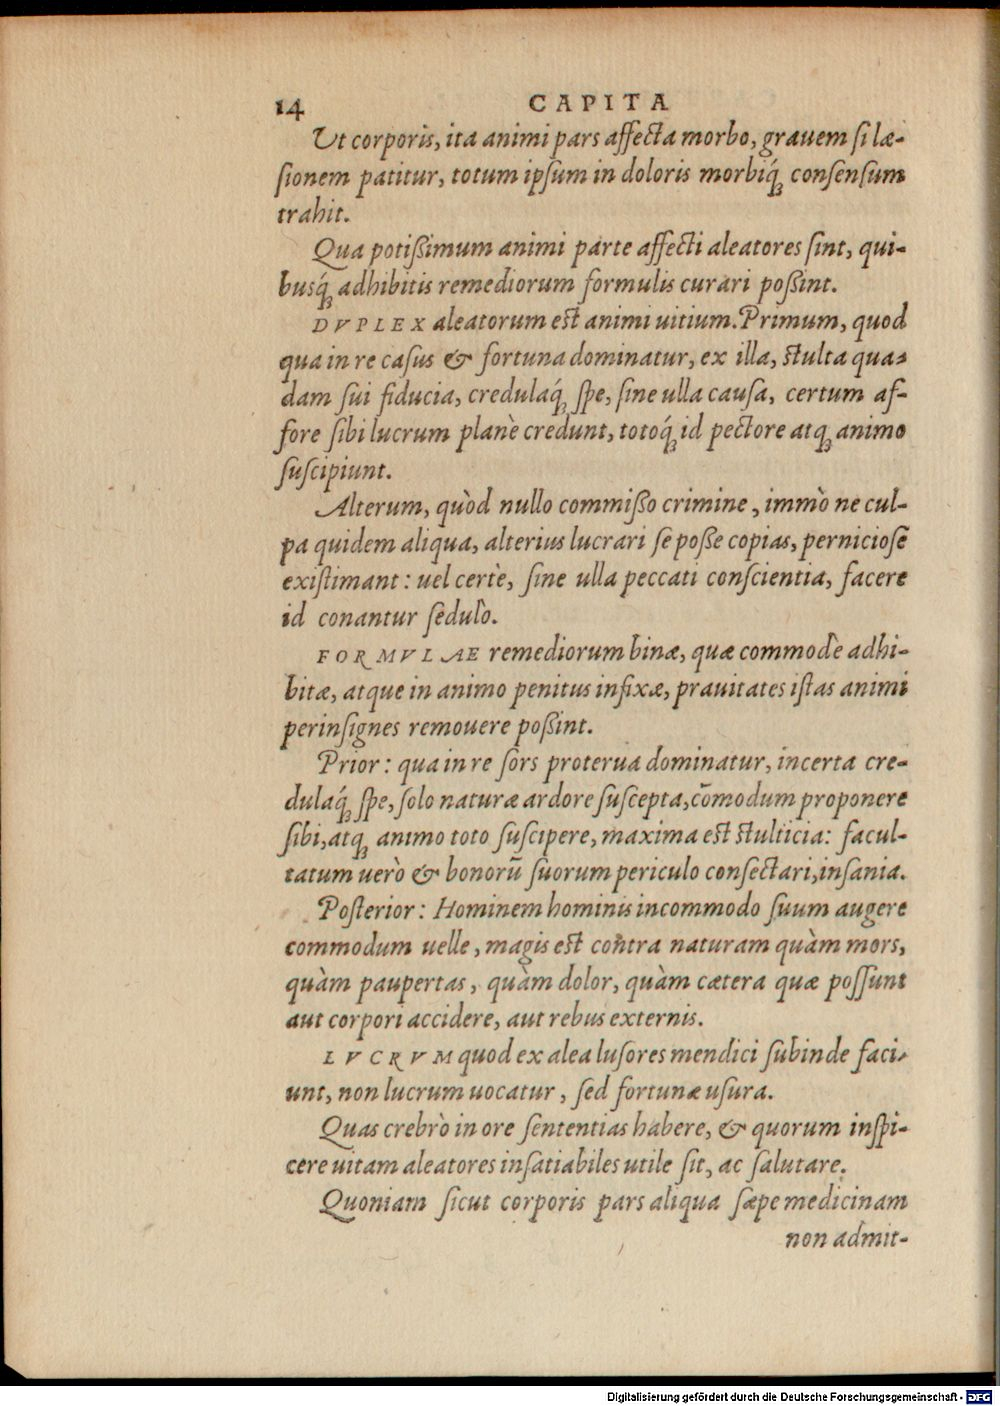 14 CAPITA
Ut corporis, ita animi pars affecta morbo, grauem si læ-
sionem patitur, totum ipsum in doloris morbiq́ꝫ consensum
trahit.
Qua potißimum animi parte affecti aleatores sint, qui-
busq́ꝫ adhibitis remediorum formulis curari poßint.
DVPLEX aleatorum est animi uitium. Primum, quod
qua in re casus & fortuna dominatur, ex illa, stulta qua-
dam sui fiducia, credulaq́ꝫ spe, sine ulla causa, certum af-
fore sibi lucrum planè credunt, totoq́ꝫ id pectore atqꝫ animo
suscipiunt.
Alterum, quòd nullo commißo crimine, immò ne cul-
pa quidem aliqua, alterius lucrari se poße copias, perniciosè
existimant: uel certè, sine ulla peccati conscientia, facere
id conantur sedulò.
FORMVLAE remediorum binæ, quæ commodè adhi-
bitæ, atque in animo penitus infixæ, prauitates istas animi
perinsignes remouere poßint.
Prior: qua in re sors proterua dominatur, incerta cre-
dulaq́ꝫ spe, solo naturæ ardore suscepta, cōmodum proponere
sibi, atqꝫ animo toto suscipere, maxima est stulticia: facul-
tatum uerò & bonorū suorum periculo consectari, insania.
Posterior: Hominem hominis incommodo suum augere
commodum uelle, magis est contra naturam quàm mors,
quàm paupertas, quàm dolor, quàm cætera quæ possunt
aut corpori accidere, aut rebus externis.
LVCRVM quod ex alea lusores mendici subinde faci-
unt, non lucrum uocatur, sed fortunæ usura.
Quas crebrò in ore sententias habere, & quorum inspi-
cere uitam aleatores insatiabiles utile sit, ac salutare.
Quoniam sicut corporis pars aliqua sæpe medicinam
non admit-
Digitalisierung gefördert durch die Deutsche Forschungsgemeinschaft - DFG